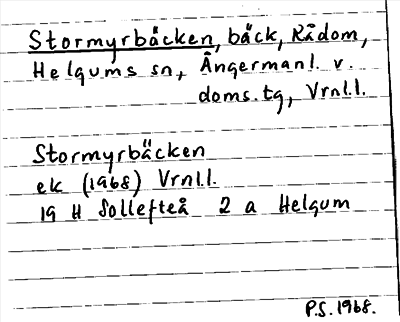 Stormyrbäcken, bäck, Rådom,
Helgums sn, Ångermanl. v.
doms.tg, Vrnl.l.
Stormyrbäcken
ek (1968) Vrnl.l.
19 H Sollefteå 2 a Helgum
P.S. 1968.